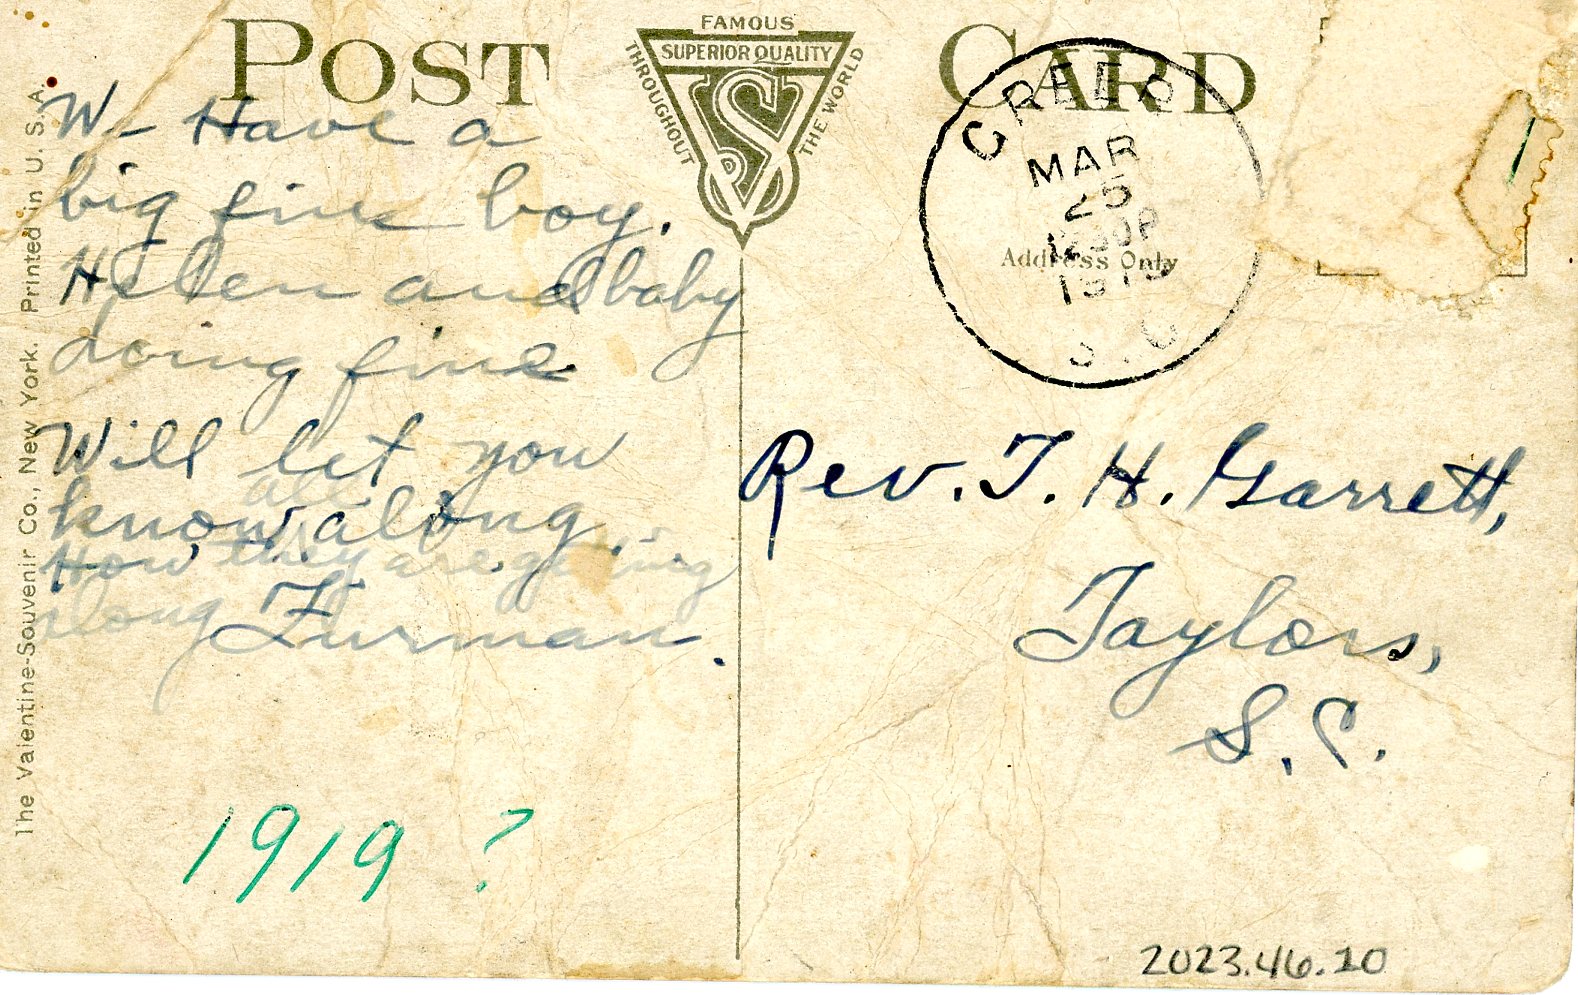 POST CARD
FAMOUS
SUPERIOR QUALITY
THROUGHOUT
THE WORLD
VS
The Valentine-Souvenir Co., New York. Printed in U.S.A.
W- Have a
big fine boy.
Helen and baby
doing fine
Will let you
all
know along.
How they are getting
along
Furman.
1919 ?
GREER
MAR
25
1230P
S.C
Address Only
Rev. T. H. Garrett,
Taylors,
S.C.
2023.46.10